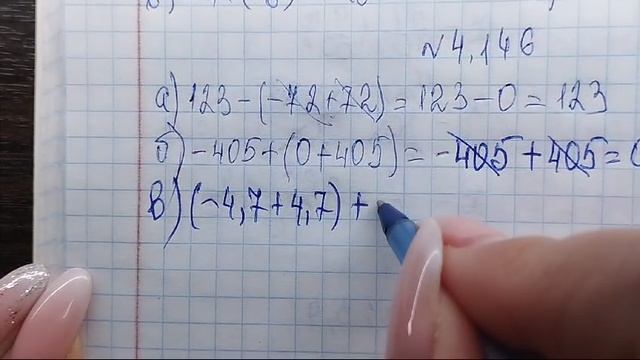 №4,146
а) 123-(-72+72)=123-0=123
б) -405+(0+405)=-405+405=0
в) (-4,7+4,7)+